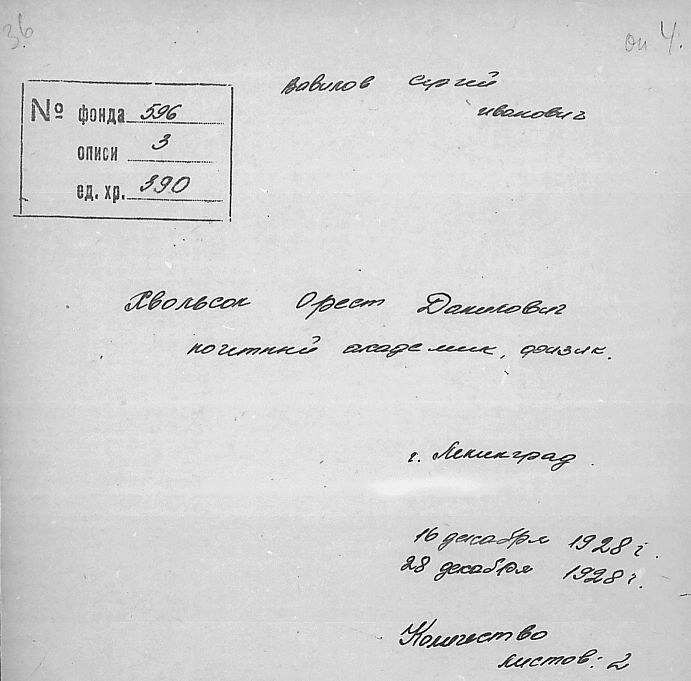 36
оп 4.
Вавилов Сергей
Иванович
№ фонда 596
описи 3
ед. хр. 390
Хвольсон Орест Данилович
почетный академик, физик.
г. Ленинград.
16 декабря 1928 г.
28 декабря 1928 г.
Количество
листов: 2